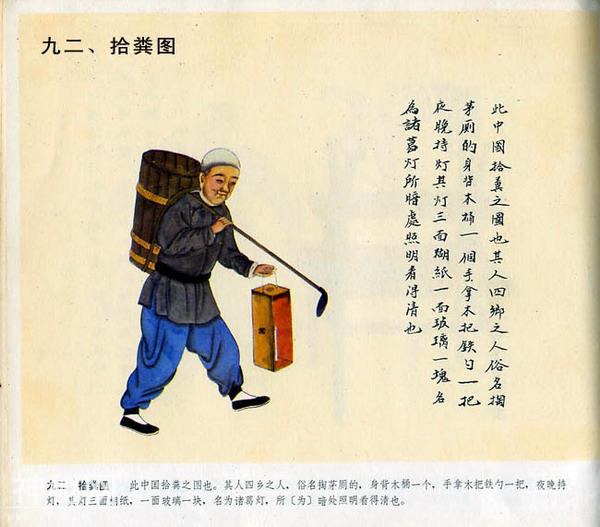 九二、拾粪图
此中國拾糞之圖也其人四鄉之人俗名掏
茅厕的身背木桶一個手拿木把鉄勺一把
夜晚持灯其灯三面糊紙一面玻璃一塊名
為諸葛灯所時處照明看得清也
九二 拾粪图 此中国拾粪之图也。其人四乡之人，俗名掏茅厕的，身背木桶一个，手拿木把铁勺一把，夜晚持
灯，其灯三面糊纸，一面玻璃一块，名为诸葛灯，所〔为〕暗处照明看得清也。